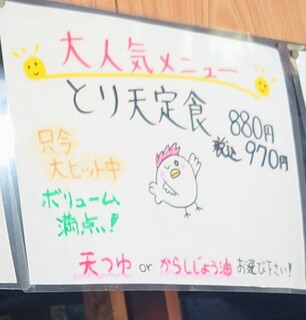 大人気メニュー
とり天定食 880円
税込 970円
只今
大ヒット中
ボリューム
満点!
天つゆ or からしじょう油 お選び下さい!